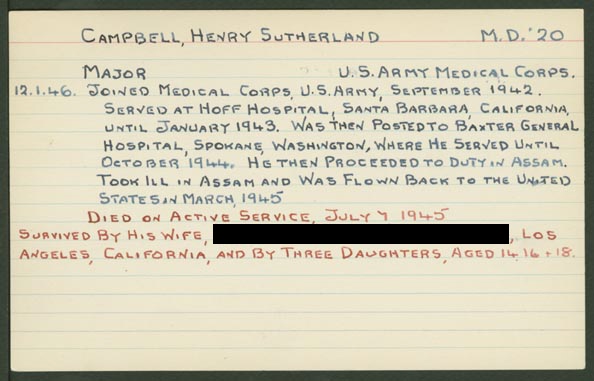 CAMPBELL, HENRY SUTHERLAND M.D. '20
MAJOR U.S. ARMY MEDICAL CORPS.
12.1.46. JOINED MEDICAL CORPS, U.S. ARMY, SEPTEMBER 1942.
SERVED AT HOFF HOSPITAL, SANTA BARBARA, CALIFORNIA,
UNTIL JANUARY 1943. WAS THEN POSTED TO BAXTER GENERAL
HOSPITAL, SPOKANE, WASHINGTON, WHERE HE SERVED UNTIL
OCTOBER 1944. HE THEN PROCEEDED TO DUTY IN ASSAM.
TOOK ILL IN ASSAM AND WAS FLOWN BACK TO THE UNITED
STATES IN MARCH, 1945
DIED ON ACTIVE SERVICE, JULY 7 1945
SURVIVED BY HIS WIFE, , LOS
ANGELES, CALIFORNIA, AND BY THREE DAUGHTERS, AGED 14, 16 + 18.